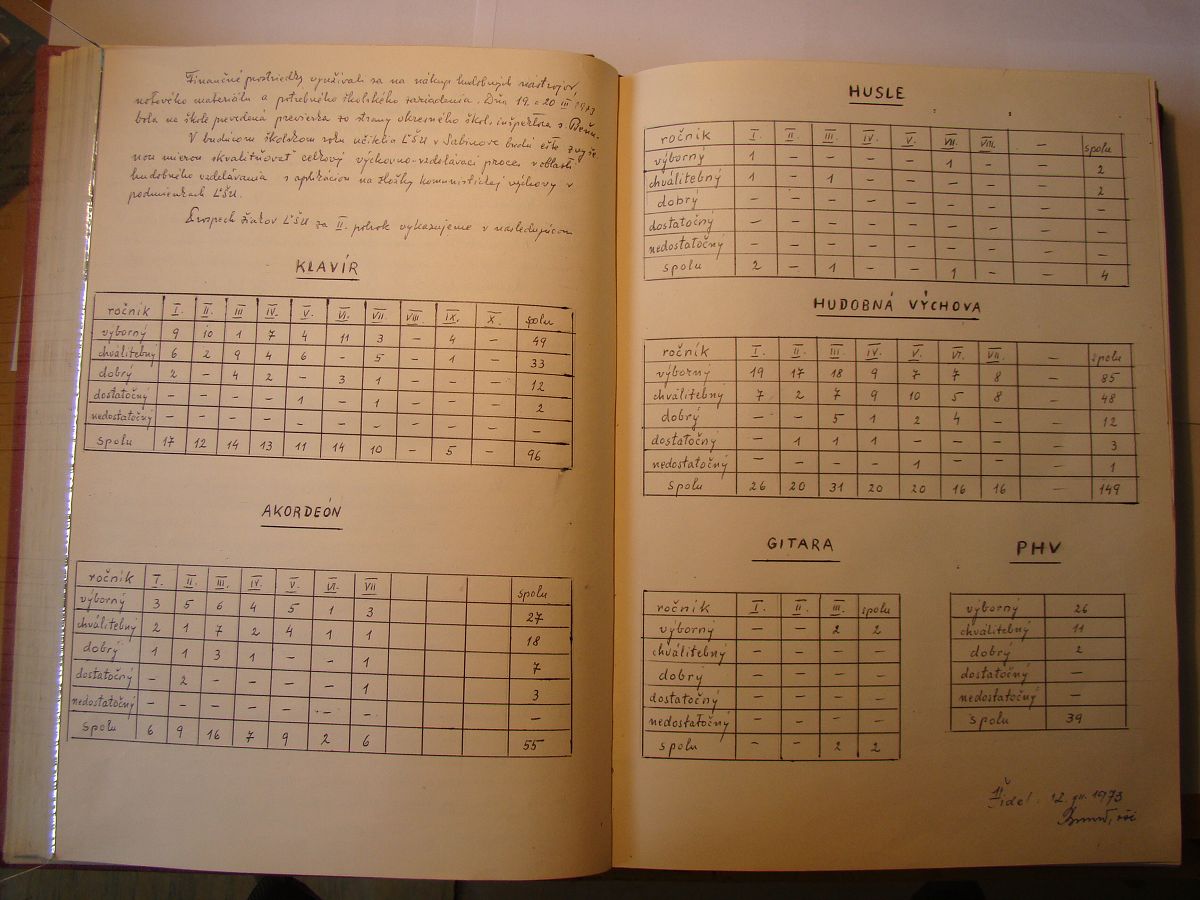 Finančné prostriedky využívali sa na nákup hudobných nástrojov,
notového materiálu a potrebného školského zariadenia. Dňa 19. a 20 III 1973
bola na škole prevedená previerka zo strany okresného škol. inšpektora s.
V budúcom školskom roku učitelia ĽŠU v Sabinove budú ešte zvýše-
nou mierou skvalitňovať celkový výchovno-vzdelávací proces v oblasti
hudobného vzdelávania s aplikáciou na zložky komunistickej výchovy v
podmienkach ĽŠU.
Prospech žiakov ĽŠU za II. polrok vykazujeme v nasledujúcom
KLAVÍR
ročník I. II. III IV. V. VI. VII. VIII IX. X. spolu
výborný 9 10 1 7 4 11 3 – 4 – 49
chválitebný 6 2 9 4 6 – 5 – 1 – 33
dobrý 2 – 4 2 – 3 1 – – – 12
dostatočný – – – – 1 – 1 – – – 2
nedostatočný – – – – – – – – – – –
spolu 17 12 14 13 11 14 10 – 5 – 96
AKORDEÓN
ročník I. II. III. IV. V. VI. VII spolu
výborný 3 5 6 4 5 1 3 27
chválitebný 2 1 7 2 4 1 1 18
dobrý 1 1 3 1 – – 1 7
dostatočný – 2 – – – – 1 3
nedostatočný – – – – – – – –
spolu 6 9 16 7 9 2 6 55
HUSLE
ročník I. II. III. IV. V. VII. VIII. – spolu
výborný 1 – – – – 1 – – 2
chválitebný 1 – 1 – – – – – 2
dobrý – – – – – – – – –
dostatočný – – – – – – – – –
nedostatočný – – – – – – – – –
spolu 2 – 1 – – 1 – – 4
HUDOBNÁ VÝCHOVA
ročník I. II. III IV. V. VI. VII. – spolu
výborný 19 17 18 9 7 7 8 – 85
chválitebný 7 2 7 9 10 5 8 – 48
dobrý – – 5 1 2 4 – – 12
dostatočný – 1 1 1 – – – – 3
nedostatočný – – – – 1 – – – 1
spolu 26 20 31 20 20 16 16 – 149
GITARA
ročník I. II. III. spolu
výborný – – 2 2
chválitebný – – – –
dobrý – – – –
dostatočný – – – –
nedostatočný – – – –
spolu – – 2 2
PHV
výborný 26
chválitebný 11
dobrý 2
dostatočný –
nedostatočný –
spolu 39
12. 1973